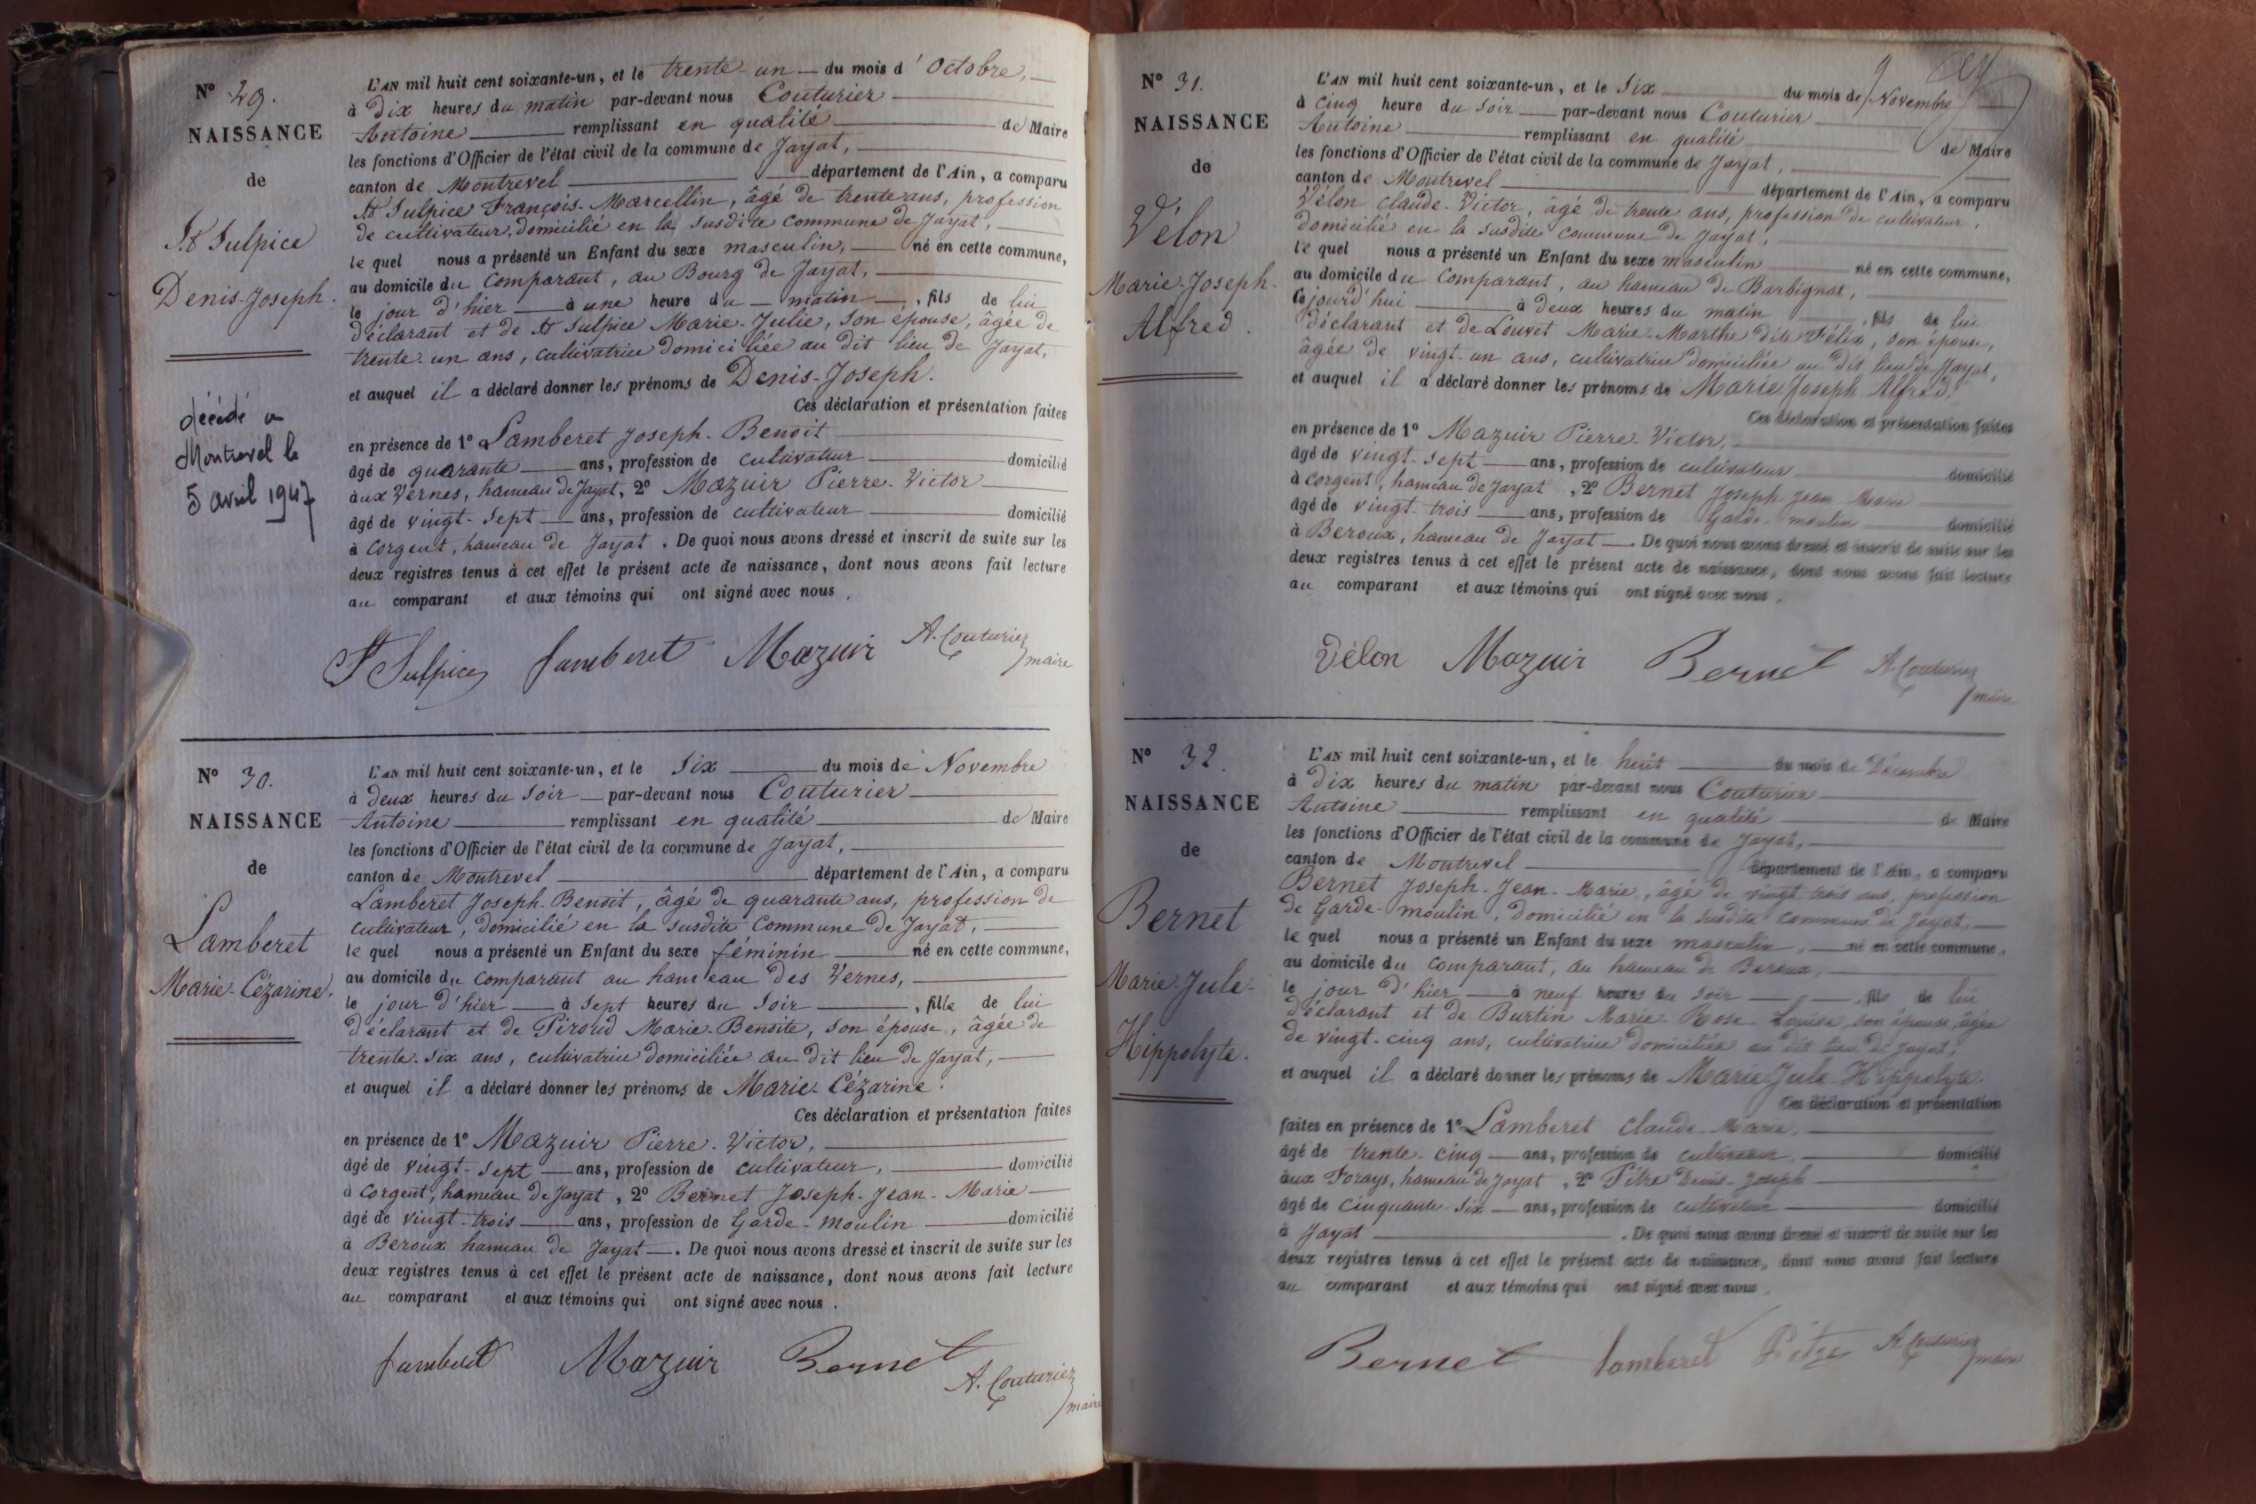 N° 29.
NAISSANCE
de
St Sulpice
Denis-Joseph.
décédé à
Montrevel le
5 avril 1947
L'AN mil huit cent soixante-un, et le trente-un du mois d'Octobre,
à dix heures du matin par-devant nous Couturier
Antoine remplissant en qualité de Maire
les fonctions d'Officier de l'état civil de la commune de Jayat,
canton de Montrevel département de l'Ain, a comparu
St Sulpice François-Marcellin, âgé de trente ans, profession
de cultivateur, domicilié en la susdite commune de Jayat,
le quel nous a présenté un Enfant du sexe masculin, né en cette commune,
au domicile du comparant, au Bourg de Jayat,
le jour d'hier à une heure du matin, fils de lui
déclarant et de St Sulpice Marie-Julie, son épouse, âgée de
trente-un ans, cultivatrice domiciliée au dit lieu de Jayat,
et auquel il a déclaré donner les prénoms de Denis-Joseph.
Ces déclaration et présentation faites
en présence de 1° Lamberet Joseph-Benoit
âgé de quarante ans, profession de cultivateur domicilié
aux Vernes, hameau de Jayat, 2° Mazuir Pierre-Victor
âgé de vingt-sept ans, profession de cultivateur domicilié
à Corgent, hameau de Jayat. De quoi nous avons dressé et inscrit de suite sur les
deux registres tenus à cet effet le présent acte de naissance, dont nous avons fait lecture
au comparant et aux témoins qui ont signé avec nous.
St Sulpice Lamberet Mazuir A. Couturier
maire
N° 30.
NAISSANCE
de
Lamberet
Marie-Cézarine.
L'AN mil huit cent soixante-un, et le Six du mois de Novembre
à deux heures du soir par-devant nous Couturier
Antoine remplissant en qualité de Maire
les fonctions d'Officier de l'état civil de la commune de Jayat,
canton de Montrevel département de l'Ain, a comparu
Lamberet Joseph-Benoit, âgé de quarante ans, profession de
cultivateur, domicilié en la susdite commune de Jayat,
le quel nous a présenté un Enfant du sexe féminin né en cette commune,
au domicile du comparant au hameau des Vernes,
le jour d'hier à sept heures du soir, fille de lui
déclarant et de Piroud Marie-Benoite, son épouse, âgée de
trente-six ans, cultivatrice domiciliée au dit lieu de Jayat,
et auquel il a déclaré donner les prénoms de Marie-Cézarine.
Ces déclaration et présentation faites
en présence de 1° Mazuir Pierre-Victor,
âgé de vingt-sept ans, profession de cultivateur, domicilié
à Corgent, hameau de Jayat, 2° Bernet Joseph-Jean-Marie
âgé de vingt-trois ans, profession de Garde-moulin domicilié
à Beroux hameau de Jayat. De quoi nous avons dressé et inscrit de suite sur les
deux registres tenus à cet effet le présent acte de naissance, dont nous avons fait lecture
au comparant et aux témoins qui ont signé avec nous.
Lamberet Mazuir Bernet A. Couturier
maire
9
N° 31.
NAISSANCE
de
Vélon
Marie-Joseph-
Alfred.
L'AN mil huit cent soixante-un, et le Six du mois de Novembre
à cinq heure du soir par-devant nous Couturier
Antoine remplissant en qualité de Maire
les fonctions d'Officier de l'état civil de la commune de Jayat,
canton de Montrevel département de l'Ain, a comparu
Vélon Claude-Victor, âgé de trente ans, profession de cultivateur,
domicilié en la susdite commune de Jayat,
le quel nous a présenté un Enfant du sexe masculin né en cette commune,
au domicile du comparant, au hameau de Barbignat,
Cejourd'hui à deux heures du matin, fils de lui
déclarant et de Louvet Marie-Marthe dite Félix, son épouse,
âgée de vingt-un ans, cultivatrice domiciliée au dit lieu de Jayat,
et auquel il a déclaré donner les prénoms de Marie Joseph Alfred.
Ces déclaration et présentation faites
en présence de 1° Mazuir Pierre Victor,
âgé de vingt-sept ans, profession de cultivateur domicilié
à Corgent, hameau de Jayat, 2° Bernet Joseph Jean Marie
âgé de vingt-trois ans, profession de Garde-moulin domicilié
à Beroux, hameau de Jayat. De quoi nous avons dressé et inscrit de suite sur les
deux registres tenus à cet effet le présent acte de naissance, dont nous avons fait lecture
au comparant et aux témoins qui ont signé avec nous.
Vélon Mazuir Bernet A. Couturier
maire
N° 32.
NAISSANCE
de
Bernet
Marie-Jule-
Hippolyte.
L'AN mil huit cent soixante-un, et le huit du mois de Décembre
à dix heures du matin par-devant nous Couturier
Antoine remplissant en qualité de Maire
les fonctions d'Officier de l'état civil de la commune de Jayat,
canton de Montrevel département de l'Ain, a comparu
Bernet Joseph-Jean-Marie, âgé de vingt trois ans, profession
de Garde-moulin, domicilié en la susdite commune de Jayat,
le quel nous a présenté un Enfant du sexe masculin, né en cette commune,
au domicile du comparant, au hameau de Beroux,
le jour d'hier à neuf heures du soir, fils de lui
déclarant et de Burtin Marie-Rose Louise, son épouse, âgée
de vingt-cinq ans, cultivatrice domiciliée au dit lieu de Jayat,
et auquel il a déclaré donner les prénoms de Marie Jule Hippolyte.
Ces déclaration et présentation
faites en présence de 1° Lamberet Claude-Marie,
âgé de trente-cinq ans, profession de cultivateur, domicilié
aux Forays, hameau de Jayat, 2° Pitre Denis-Joseph
âgé de cinquante-six ans, profession de cultivateur domicilié
à Jayat. De quoi nous avons dressé et inscrit de suite sur les
deux registres tenus à cet effet le présent acte de naissance, dont nous avons fait lecture
au comparant et aux témoins qui ont signé avec nous.
Bernet Lamberet Pitre A. Couturier
maire